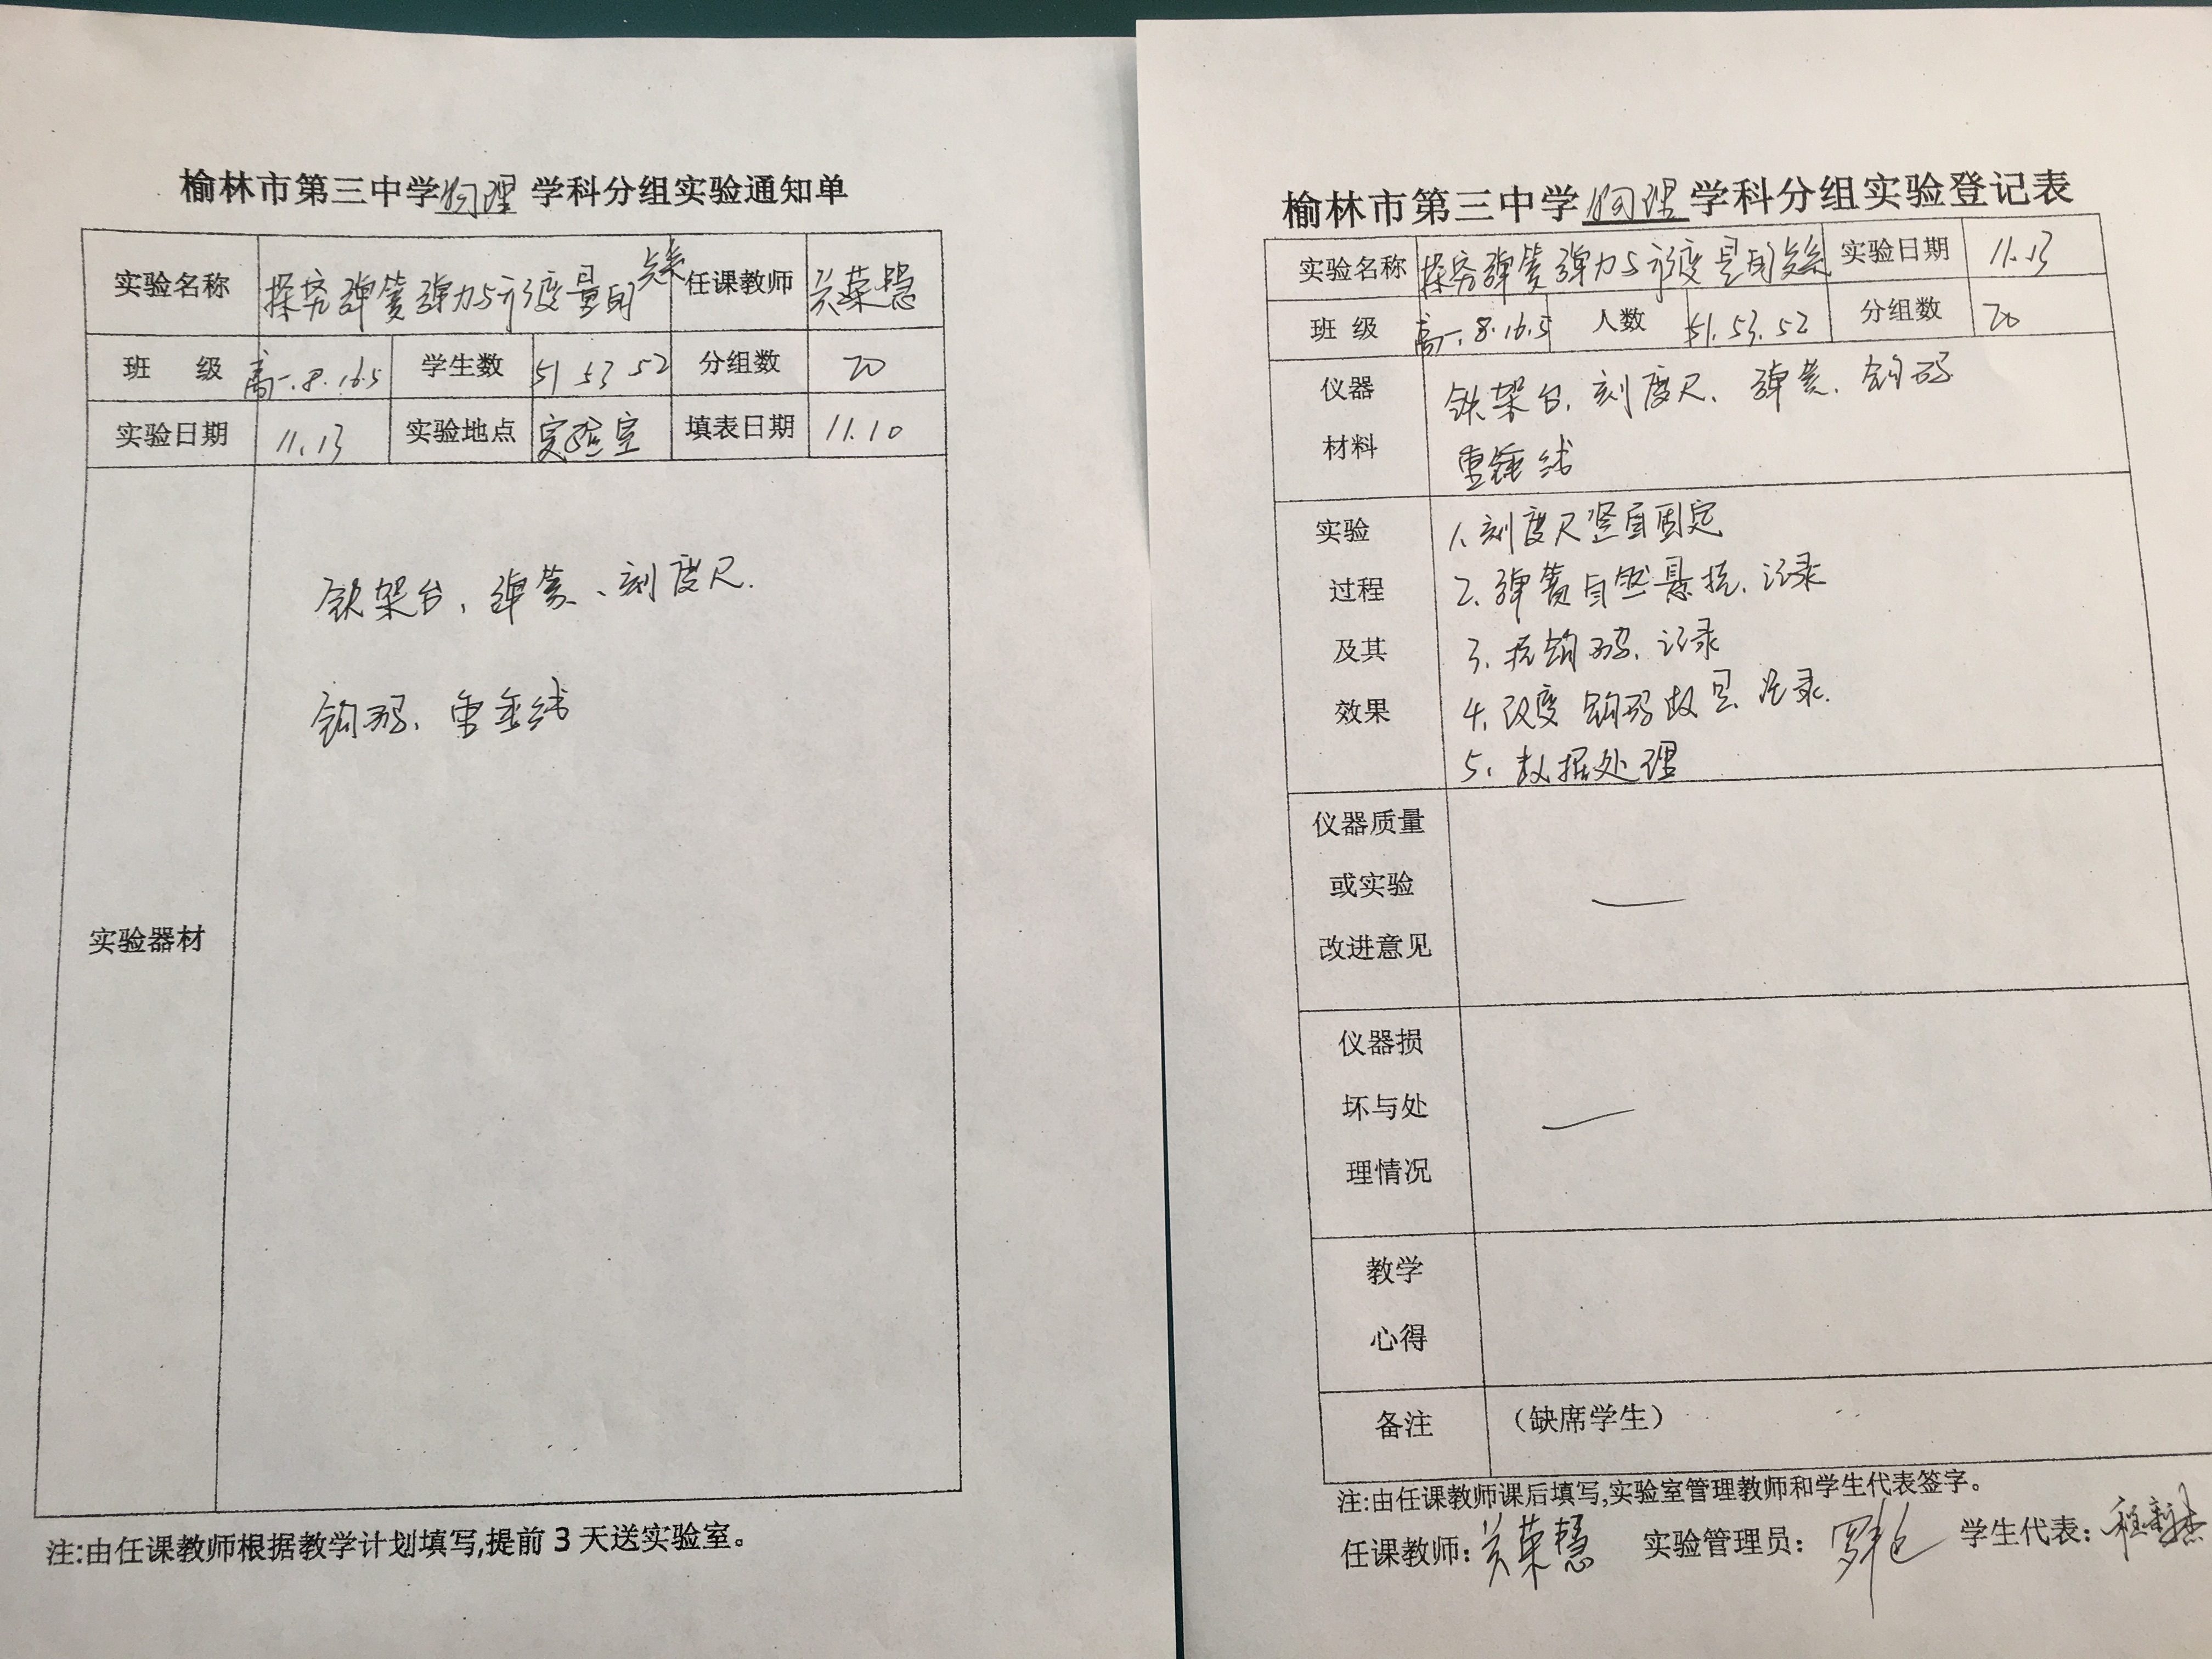 榆林市第三中学物理学科分组实验通知单
实验名称 探究弹簧弹力与形变量的关系 任课教师 关荣慧
班 级 高一.8.16.5 学生数 51 53 52 分组数 20
实验日期 11.13 实验地点 实验室 填表日期 11.10
实验器材
铁架台、弹簧、刻度尺.
钩码、重垂线
注:由任课教师根据教学计划填写,提前3天送实验室。
榆林市第三中学物理学科分组实验登记表
实验名称 探究弹簧弹力与形变量的关系 实验日期 11.13
班 级 高一.8.16.5 人数 51.53.52 分组数 20
仪器
材料
铁架台、刻度尺、弹簧、钩码
重锤线
实验
过程
及其
效果
1、刻度尺竖直固定
2、弹簧自然悬挂、记录
3、挂钩码、记录
4、改变钩码数量 记录.
5、数据处理
仪器质量
或实验
改进意见
—
仪器损
坏与处
理情况
—
教学
心得
备注 (缺席学生)
注:由任课教师课后填写,实验室管理教师和学生代表签字。
任课教师:关荣慧 实验管理员: 学生代表: